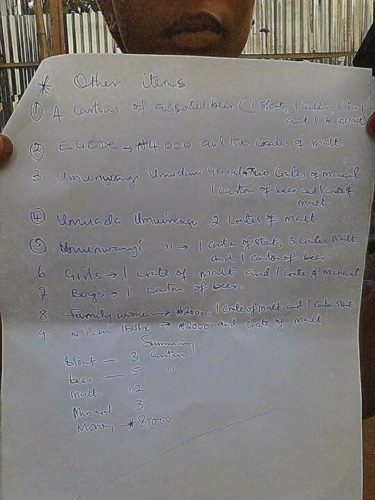 * Other items
① 4 Cartons of assorted beer (1 Stout, 1
and 1
② EGEDE → ₦4000 and two Crates of malt.
3 Umunwanyi Umudim Two Crates of Mineral
1 Carton of beer and 1 crate of
malt
④ Umuada 2 Crates of malt.
⑤ Umunwanyi " → 1 carton of stout, 3 Crates Malt
and 1 Carton of beer.
6 Girls → 1 Crate of malt and 1 Crate of Mineral
7 Boys → 1 Carton of beer.
8 Family women → ₦2000, 1 Crate of malt and 1 Carton Stout
9. → ₦2000 and Crate of malt.
Summary
Stout — 3 Cartons
beer — 5 "
malt 12
Mineral 3
Money ₦8,000